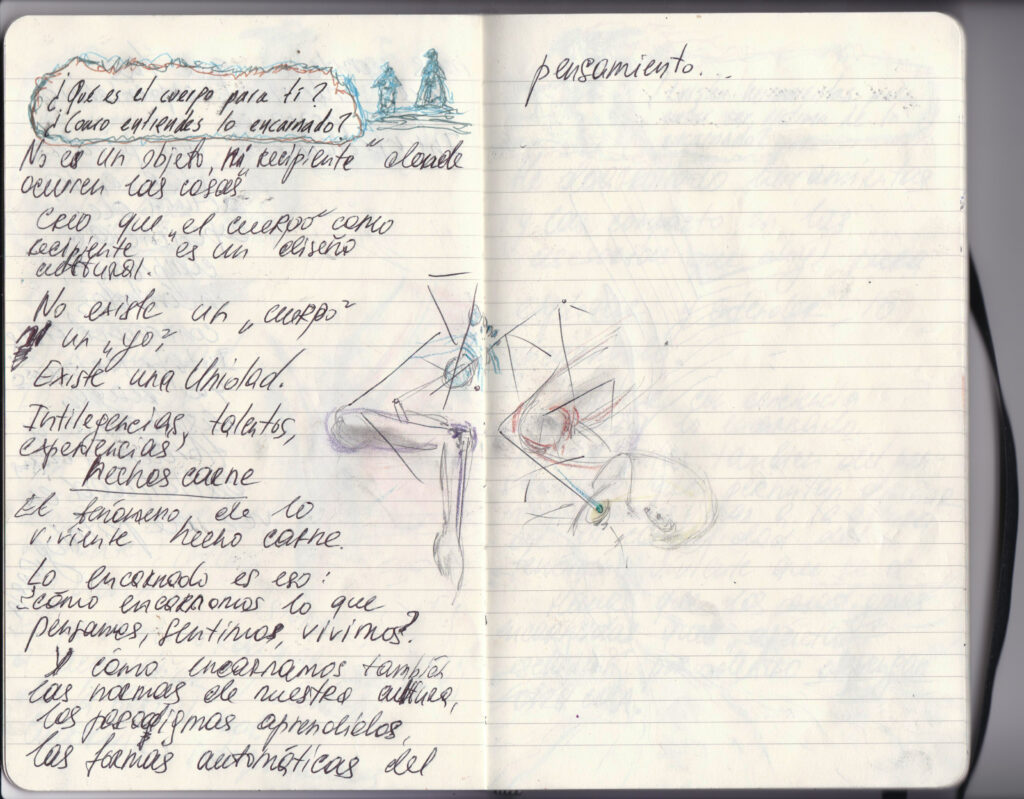 ¿Qué es el cuerpo para ti?
¿Como entiendes lo encarnado?
No es un objeto, ni „recipiente" donde
ocurren las cosas"
Creo que „el cuerpo" como
recipiente es un diseño
cultural.
No existe un „cuerpo"
y un „yo",
Existe una Unidad.
Intilegencias, talentos,
experiencias,
hechos carne
El fenómeno de lo
viviente hecho carne.
Lo encarnado es eso:
¿cómo encarnamos lo que
pensamos, sentimos, vivimos?
Y cómo encarnamos también
las normas de nuestra cultura,
los paradigmas aprendidos,
las formas automáticas del
pensamiento...